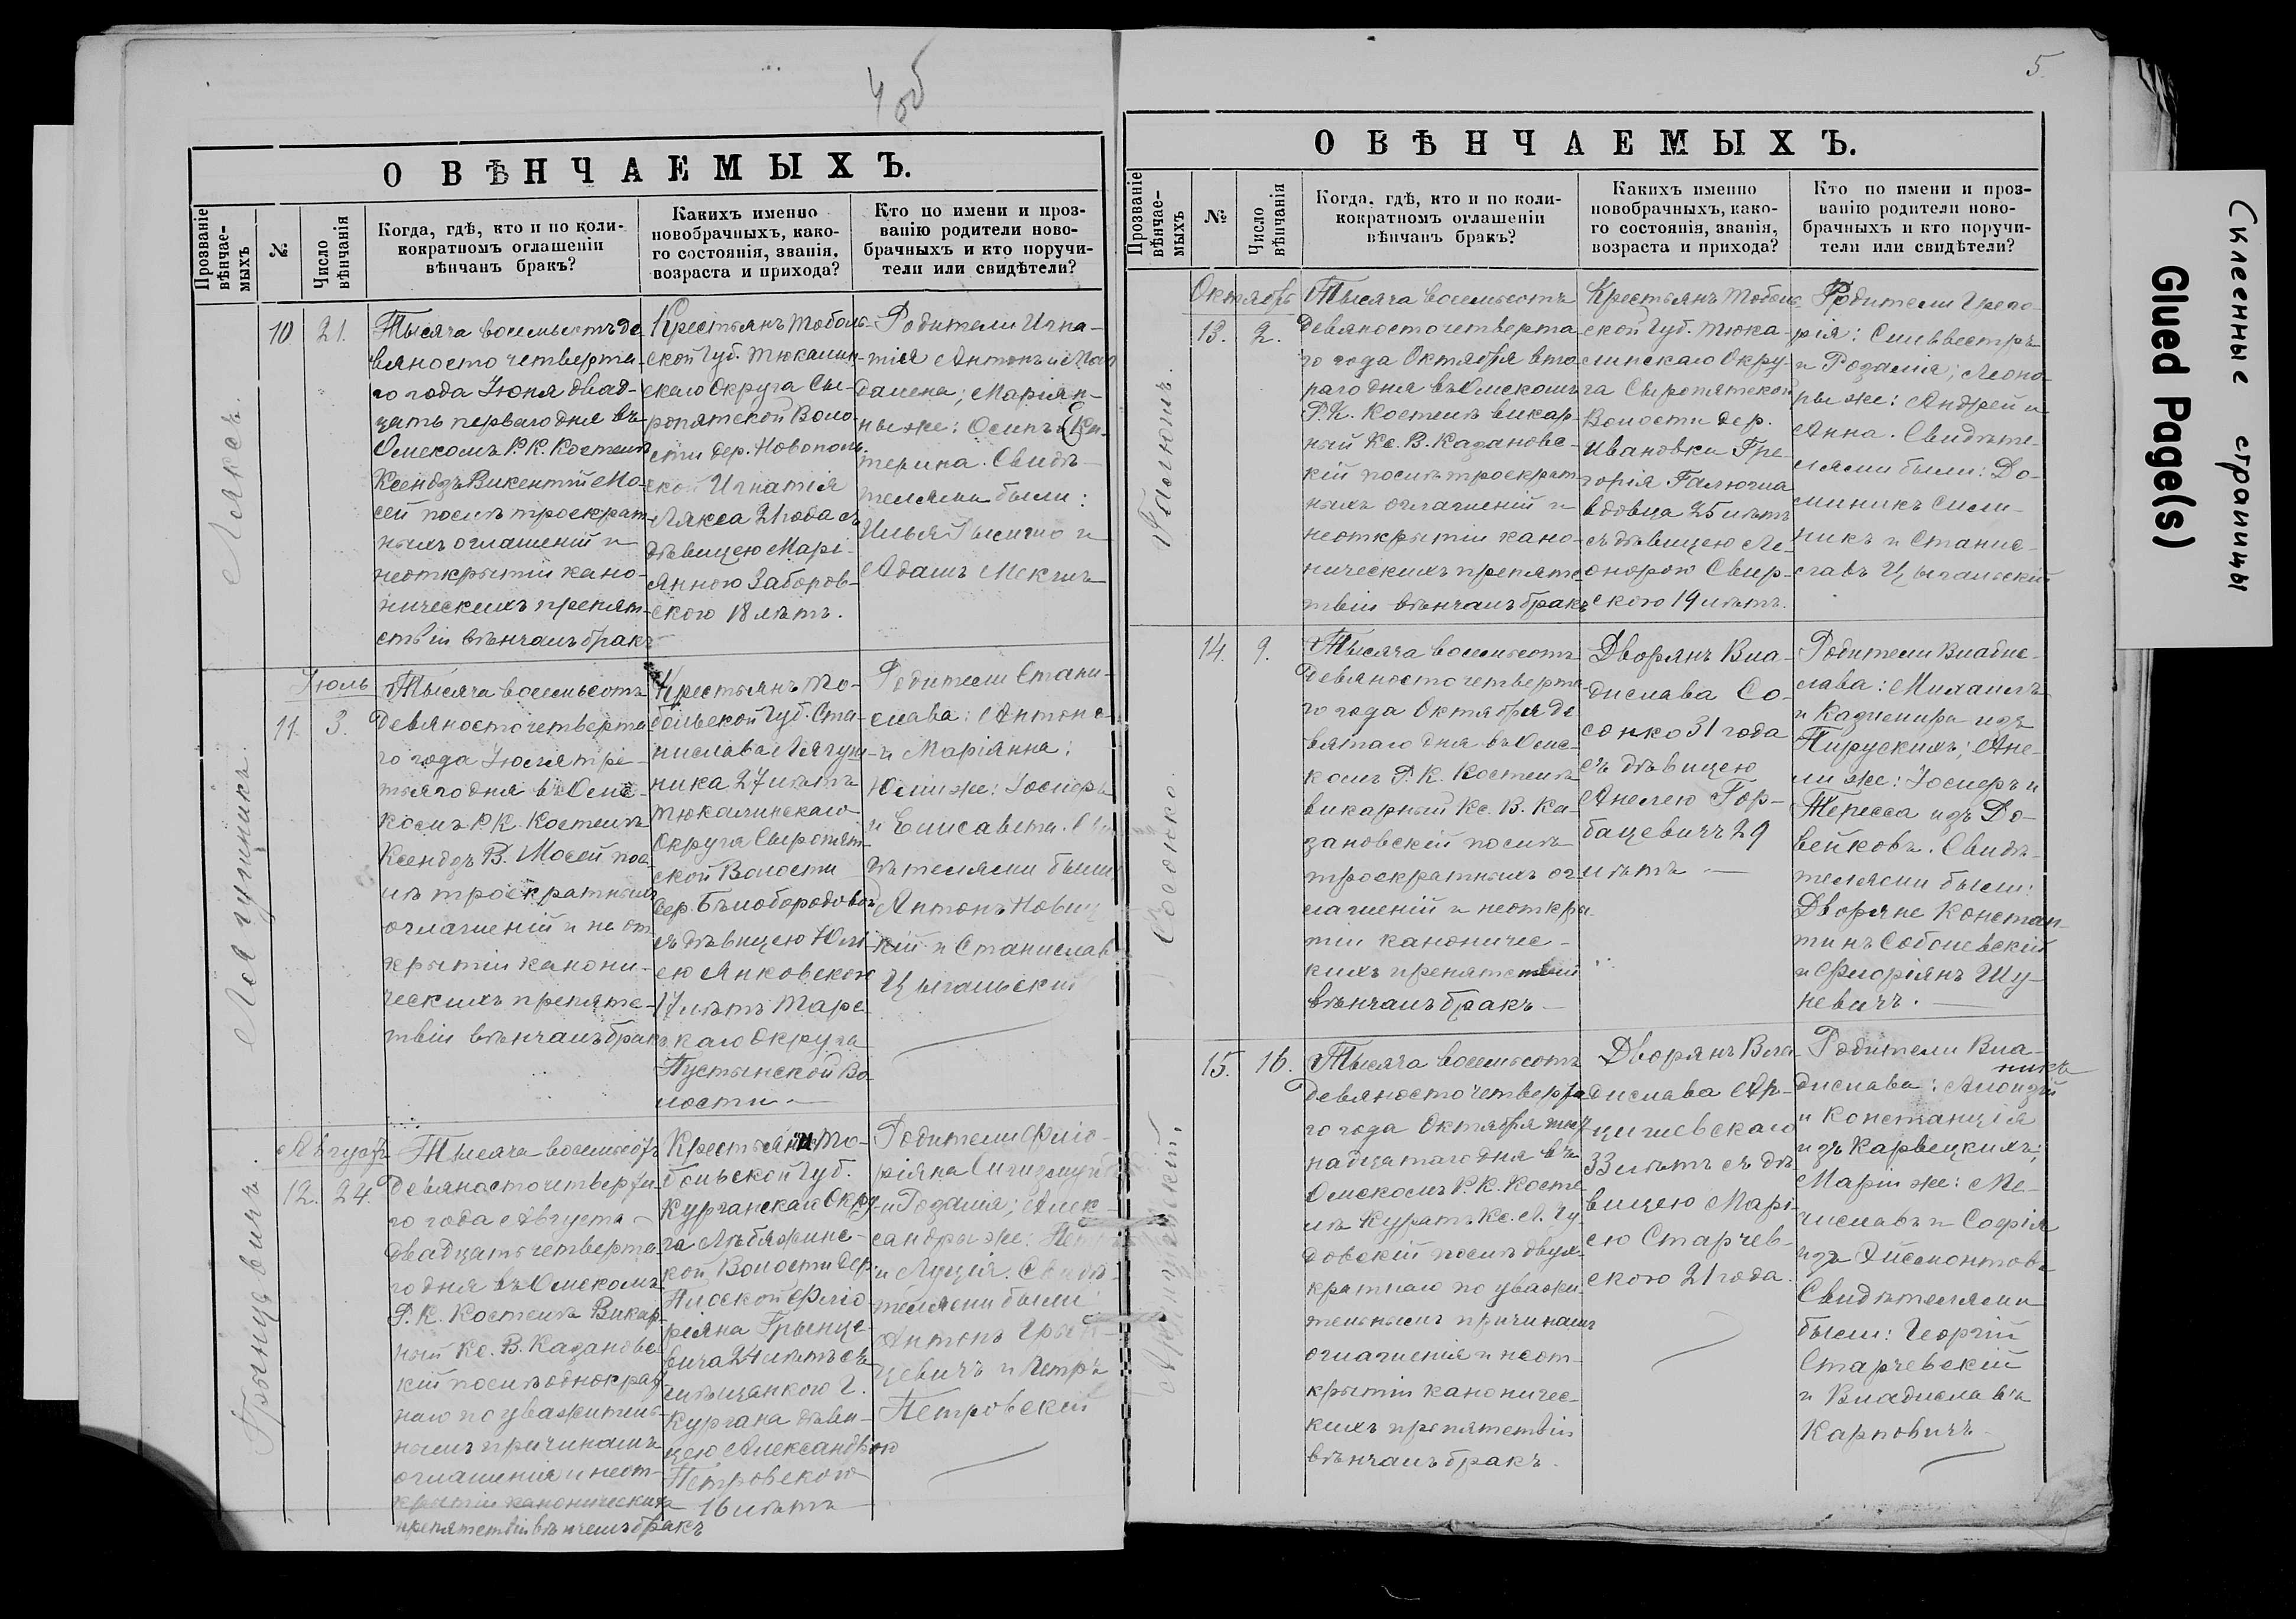 4 об
О ВѢНЧАЕМЫХЪ.
Прозваніе вѣнчае-мыхъ
№
Число вѣнчанія
Когда, гдѣ, кто и по коли-
кократномъ оглашеніи
вѣнчанъ бракъ?
Какихъ именно
новобрачныхъ, како-
го состоянія, званія,
возраста и прихода?
Кто по имени и проз-
ванію родители ново-
брачныхъ и кто поручи-
тели или свидѣтели?
Ляксъ.
10
21.
Тысяча восемьсотъ де
вяносто четверта-
го года Іюня двад-
цать перваго дня въ
Омскомъ Р. К. Костелѣ
Ксендзъ Викентій Мо-
сей послѣ троекрат-
ныхъ оглашеній и
неоткрытіи кано-
ническихъ препят-
ствій вѣнчалъ бракъ
Крестьянъ Тоболь-
ской Губ. Тюкалин-
скаго Округа Сы-
ропятской Воло-
сти дер. Новополь-
ской Игнатія
Лякса 21 года съ
дѣвицею Марі-
анною Заборов-
скою 18 лѣтъ.
Родители Игна-
тія Антонъ и Маг
далена; Маріян-
ны же: Осипъ и Ека-
терина. Свидѣ-
телями были:
Илья и
Адамъ
Лягушникъ.
Іюль
11.
3.
Тысяча восемьсотъ
девяносто четверта
го года Іюля тре-
тьяго дня въ Омс-
комъ Р. К. Костелѣ
Ксендзъ В. Мосей пос-
лѣ троекратныхъ
оглашеній и не от-
крытіи канони-
ческихъ препятс-
твій вѣнчалъ бракъ
Крестьянъ То-
больской Губ. Ста-
нислава Лягуш-
ника 27 лѣтъ
Тюкалинскаго
Округа Сыропят-
ской Волости
дер. Бѣлобородовой
съ дѣвицею Юлі-
ею Янковскою
17 лѣтъ Тарс-
каго Округа
Пустынской Во-
лости.
Родители Стани-
слава: Антонъ
и Маріянна;
Юліи же: Іосифъ
и Елисавета. Сви
дѣтелями были
Антонъ Новиц
кій и Станиславъ
Цыгальскій
Грынцевичъ.
Августъ
12.
24.
Тысяча восемьсотъ
девяносто четверта-
го года Августа
двадцать четверта-
го дня въ Омскомъ
Р. К. Костелѣ Викар-
ный Кс. В. Казановс-
кій послѣ однократ-
наго по уважитель-
нымъ причинамъ
оглашенія и неот-
крытіи каноническихъ
препятствій вѣнчалъ бракъ
Крестьянъ То-
больской Губ.
Курганскаго Окру-
га Лѣбяжинс-
кой Волости дер.
Фло-
ріяна Грынце-
вича 24 лѣтъ съ
мѣщанкою г.
Кургана дѣви-
цею Александрою
Петровскою
16 лѣтъ
Родители Фло-
ріяна Сигизмундъ
и Розалія; Алек-
сандры же: Петръ
и Луція. Свидѣ-
телями были
Антонъ Грын-
цевичъ и Петръ
Петровскій
5
О ВѢНЧАЕМЫХЪ.
Прозваніе вѣнчае-мыхъ
№
Число вѣнчанія
Когда, гдѣ, кто и по коли-
кократномъ оглашеніи
вѣнчанъ бракъ?
Какихъ именно
новобрачныхъ, како-
го состоянія, званія,
возраста и прихода?
Кто по имени и проз-
ванію родители ново-
брачныхъ и кто поручи-
тели или свидѣтели?
Октябрь
13.
2.
Тысяча восемьсотъ
девяносто четверта-
го года Октября вто-
раго дня въ Омскомъ
Р. К. Костелѣ викар-
ный Кс. В. Казановс-
кій послѣ троекрат-
ныхъ оглашеній и
неоткрытіи кано-
ническихъ препятс-
твій вѣнчалъ бракъ
Крестьянъ Тоболь-
ской Губ. Тюка-
линскаго Окру-
га Сыропятской
Волости дер.
Ивановки Гре-
горія
вдовца 25 лѣтъ
съ дѣвицею Ле-
онорою Свир-
скою 19 лѣтъ.
Родители Грего-
рія: Сильвестръ
и Розалія; Леоно-
ры же: Андрей и
Анна. Свидѣте-
лями были: До-
миникъ
и Станис-
лавъ Цыгальскій
Сосонко.
14.
9.
Тысяча восемьсотъ
девяносто четверта-
го года Октября де
вятаго дня въ Омс-
комъ Р. К. Костелѣ
викарный Кс. В. Ка-
зановскій послѣ
троекратныхъ ог-
лашеній и неоткры-
тіи каноничес-
кихъ препятствій
вѣнчалъ бракъ
Дворянъ Вла-
дислава Со-
сонко 31 года
съ дѣвицею
Анелею Гор-
бацевичъ 29
лѣтъ
Родители Владис-
лава: Михаилъ
и Казимира изъ
Пирускихъ; Ане-
ли же: Іосифъ и
Тересса изъ До-
вейковъ. Свидѣ-
телями были:
Дворяне Констан-
тинъ Соболевскій
и Флоріянъ Шу-
невичъ.
15.
16.
Тысяча восемьсотъ
девяносто четверта-
го года Октября шест
надцатаго дня въ
Омскомъ Р. К. Косте-
лѣ Куратъ Кс. Л. Гу-
довскій послѣ двук-
кратнаго по уважи-
тельнымъ причинамъ
оглашенія и неот-
крытіи каноничес-
кихъ препятствій
вѣнчалъ бракъ.
Дворянъ Вла-
дислава Ар-
цишевскаго
33 лѣтъ съ дѣ-
вицею Марі-
ею Старчев-
скою 21 года.
Родители Вла-
дислава:
и Констанція
изъ Карвецкихъ;
Маріи же: Ме-
числавъ и Софія
изъ Эйсмонтовъ
Свидѣтелями
были: Георгій
Старчевскій
и Владиславъ
Карповичъ
Склеенные страницы
Glued Page(s)